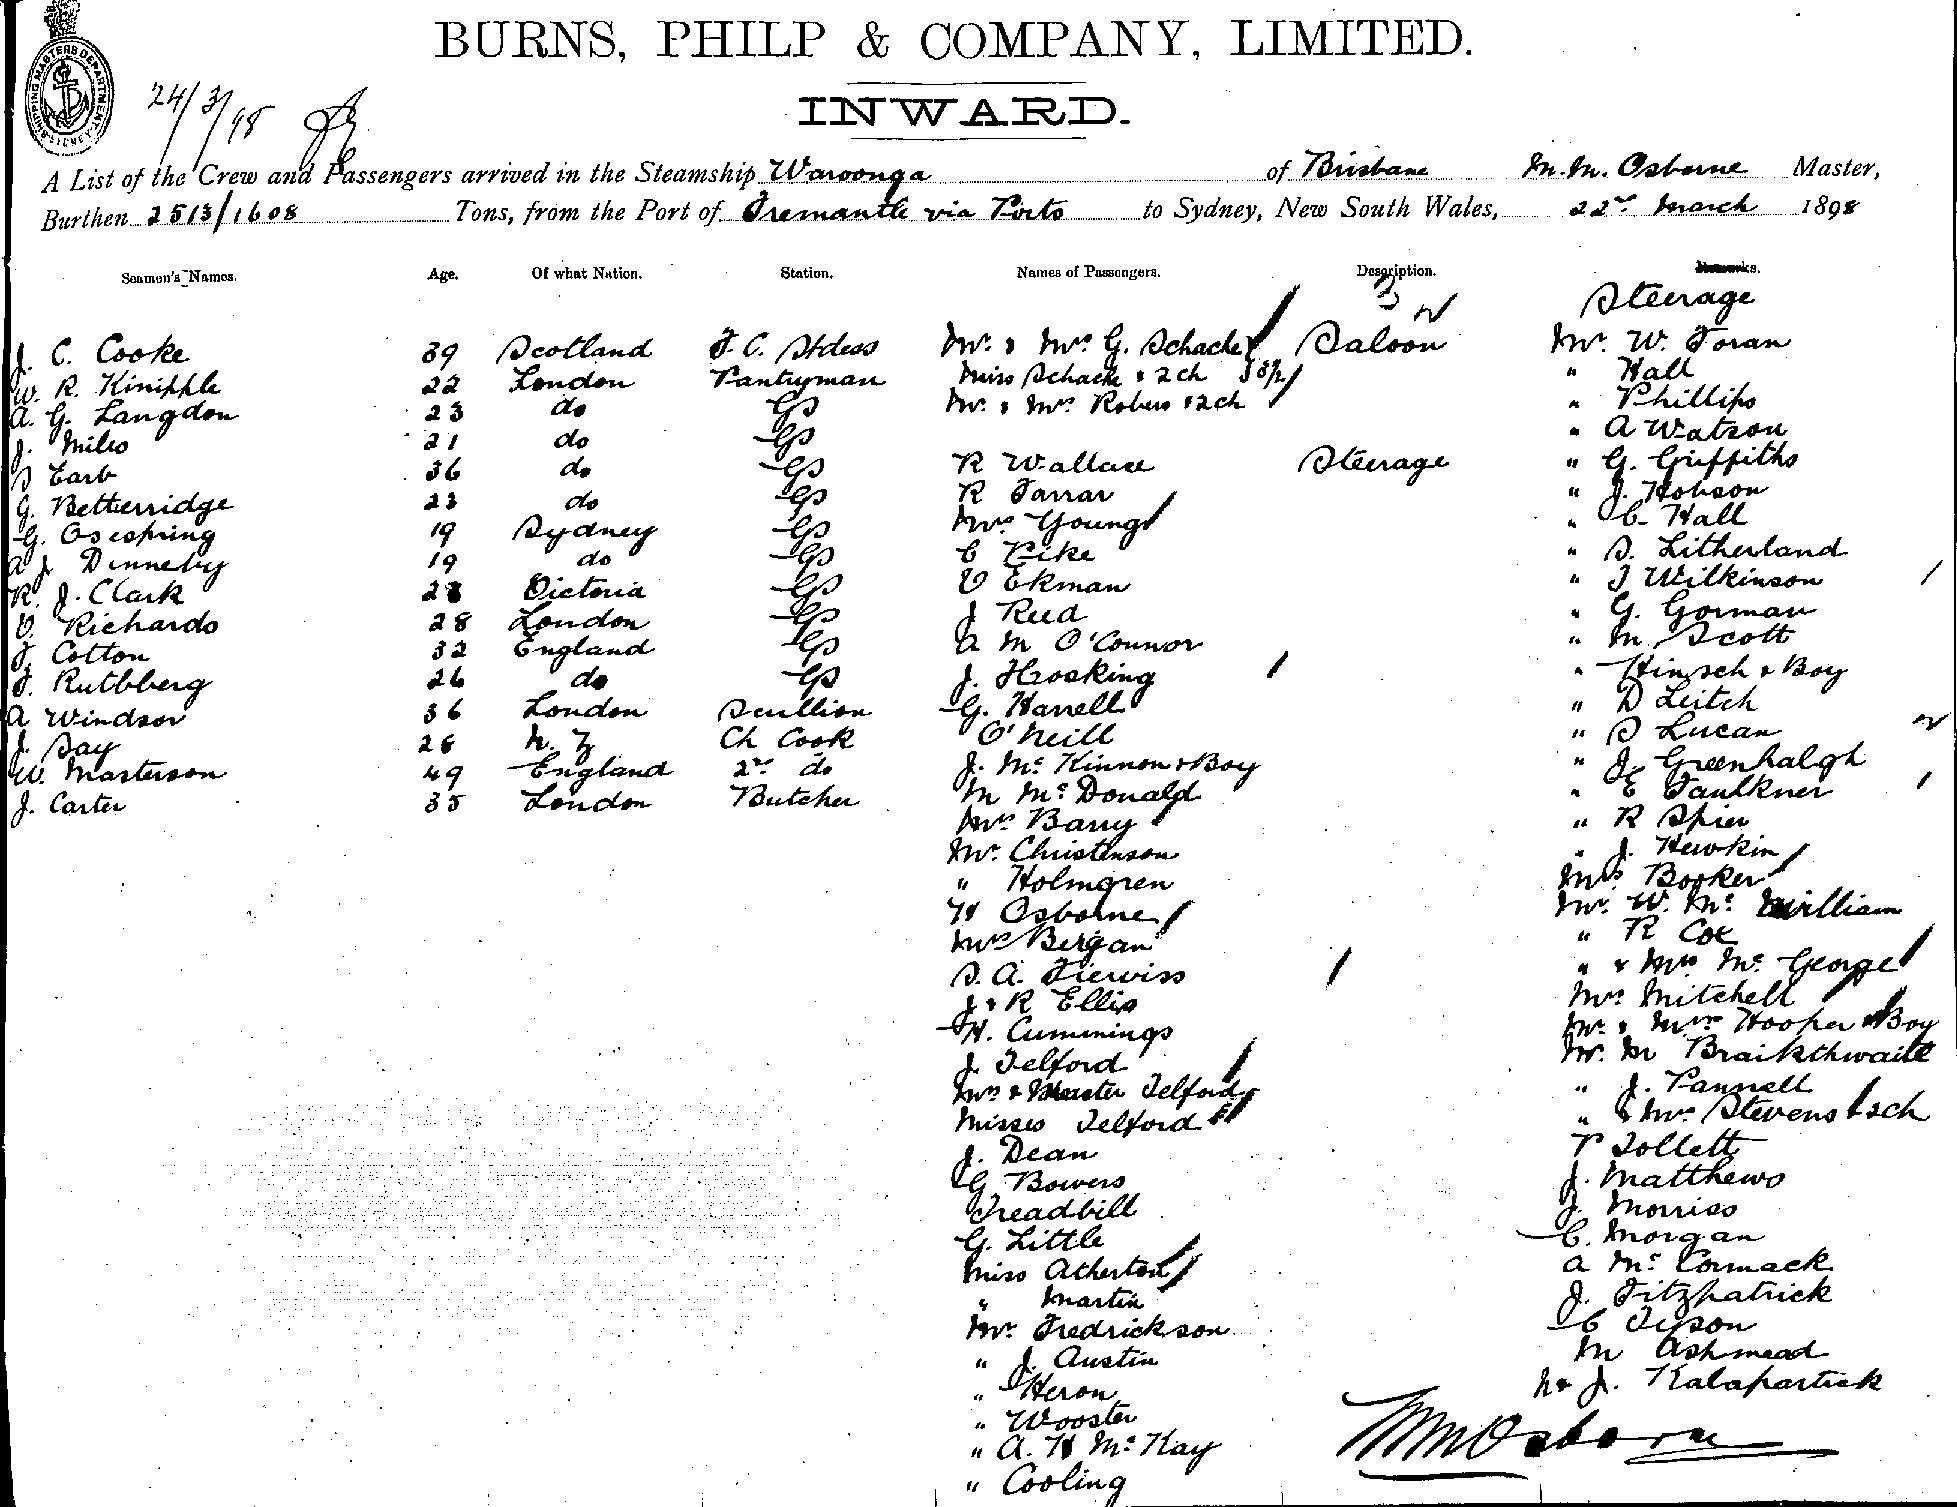 BURNS, PHILP & COMPANY, LIMITED.
SHIPPING MASTERS DEPARTMENT SYDNEY
24/3/98
INWARD.
A List of the Crew and Passengers arrived in the Steamship Waroonga of Brisbane M.M. Osborne Master,
Burthen 2513/1608 Tons, from the Port of Fremantle via Ports to Sydney, New South Wales, 22nd March 1898
Seamen's Names. Age. Of what Nation. Station. Names of Passengers. Description.
J. C. Cooke 39 Scotland F. C. Stdess
W. R. Kinipple 22 London Pantryman
A. G. Langdon 23 do GS
J. Miles 21 do GS
S Earb 36 do GS
G. Betteridge 23 do GS
G. Osespring 19 Sydney GS
A J Dinneby 19 do GS
R. J. Clark 28 Victoria GS
V. Richards 28 London GS
J. Cotton 32 England GS
F. Rutbberg 26 do GS
A Windsor 36 London Scullion
J. Day 28 N. Z Ch Cook
W. Masterson 49 England 2nd do
J. Carter 35 London Butcher
Mr. & Mrs G. Schache Saloon
Miss Schache & 2 ch
Mr. & Mrs Robers & 2 ch
R Wallace Steerage
R Farrar
Mrs Young
C Pike
V Ekman
J Reed
A M O'Connor
J. Hrosking
G. Harrell
O'Neill
J. McKinnon & Boy
M McDonald
Mrs Barry
Mr. Christenson
" Holmgren
H Osborne
Mrs Bergan
S. A. Fierviss
J & R Ellis
H. Cummings
J. Telford
Mrs & Master Telford
Misses Telford
J. Dean
G Bowers
Treadbill
G. Little
Miss Atherton
" Martin
Mr. Fredrickson
" J. Austin
" Heron
" Wooster
" A. H McKay
" Cooling
Steerage
Mr. W. Foran
" Hall
" Phillips
" A Watson
" G. Griffiths
" J. Hobson
" C. Hall
" S. Litherland
" J Wilkinson
" G. Gorman
" M. Scott
" Hinsch & Boy
" D Leitch
" S Lucan
" J. Greenhalgh
" E Faulkner
" R Spier
" J. Hewkin
Mrs Booker
Mr. W. McWilliam
" R Cox
" & Mrs McGeorge
Mrs Mitchell
Mr. & Mrs Hooper & Boy
Mr. M Braikthwaite
" J. Pannell
" & Mrs Stevens & 2 ch
P Tollett
J. Matthews
J. Morriss
C. Morgan
A McCormack
J. Fitzpatrick
C Tyson
M Ashmead
N & J. Kalapartick
MM Osborne